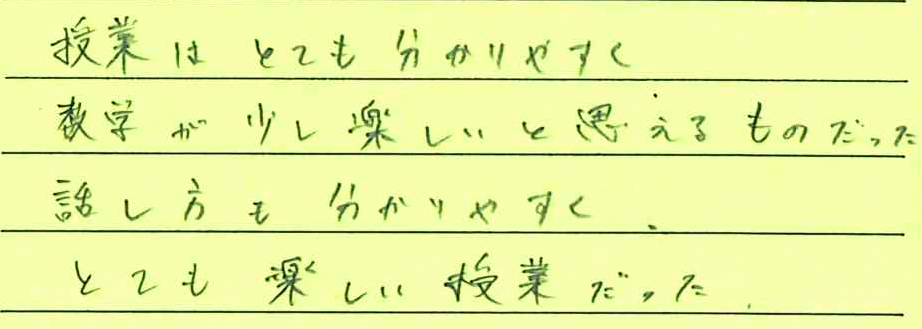 授業はとても分かりやすく
数学が少し楽しいと思えるものだった
話し方も分かりやすく、
とても楽しい授業だった.